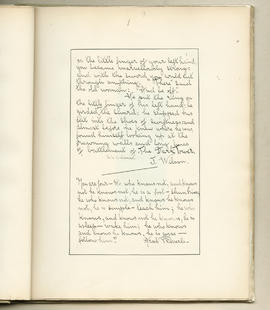 on the little finger of your left hand
you became marvellously strong:
and with the sword you could cut
through anything. "There" said
the old woman; "And be off."
He put the ring on
the little finger of his left hand; he
girded the sword; he slipped his
feet into the shoes of swiftness and
almost before he knew where he was
found himself looking up at the
frowning walls and long lines
of battlement of The Dark Tower.
J. Wilson.
He who knows not, and knows
not he knows not, he is a fool - shun him;
he who knows not, and knows he knows
not, he is simple - teach him; he who
knows, and knows not he knows, he is
asleep - wake him; he who knows
and knows he knows, he is wise -
follow him."